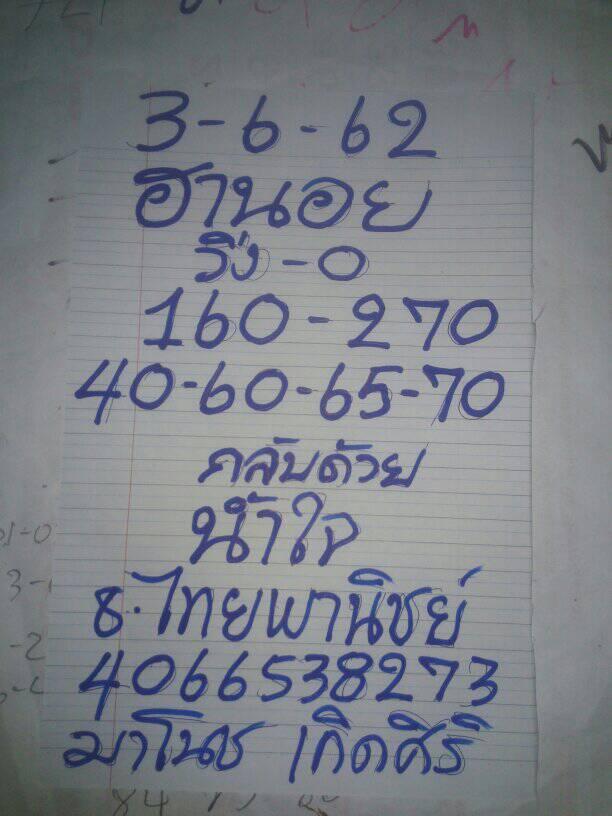 3-6-62
ฮานอย
วิ่ง-0
160-270
40-60-65-70
กลับด้วย
น้ำใจ
ธ.ไทยพานิชย์
4066538273
มาโนช เกิดศิริ